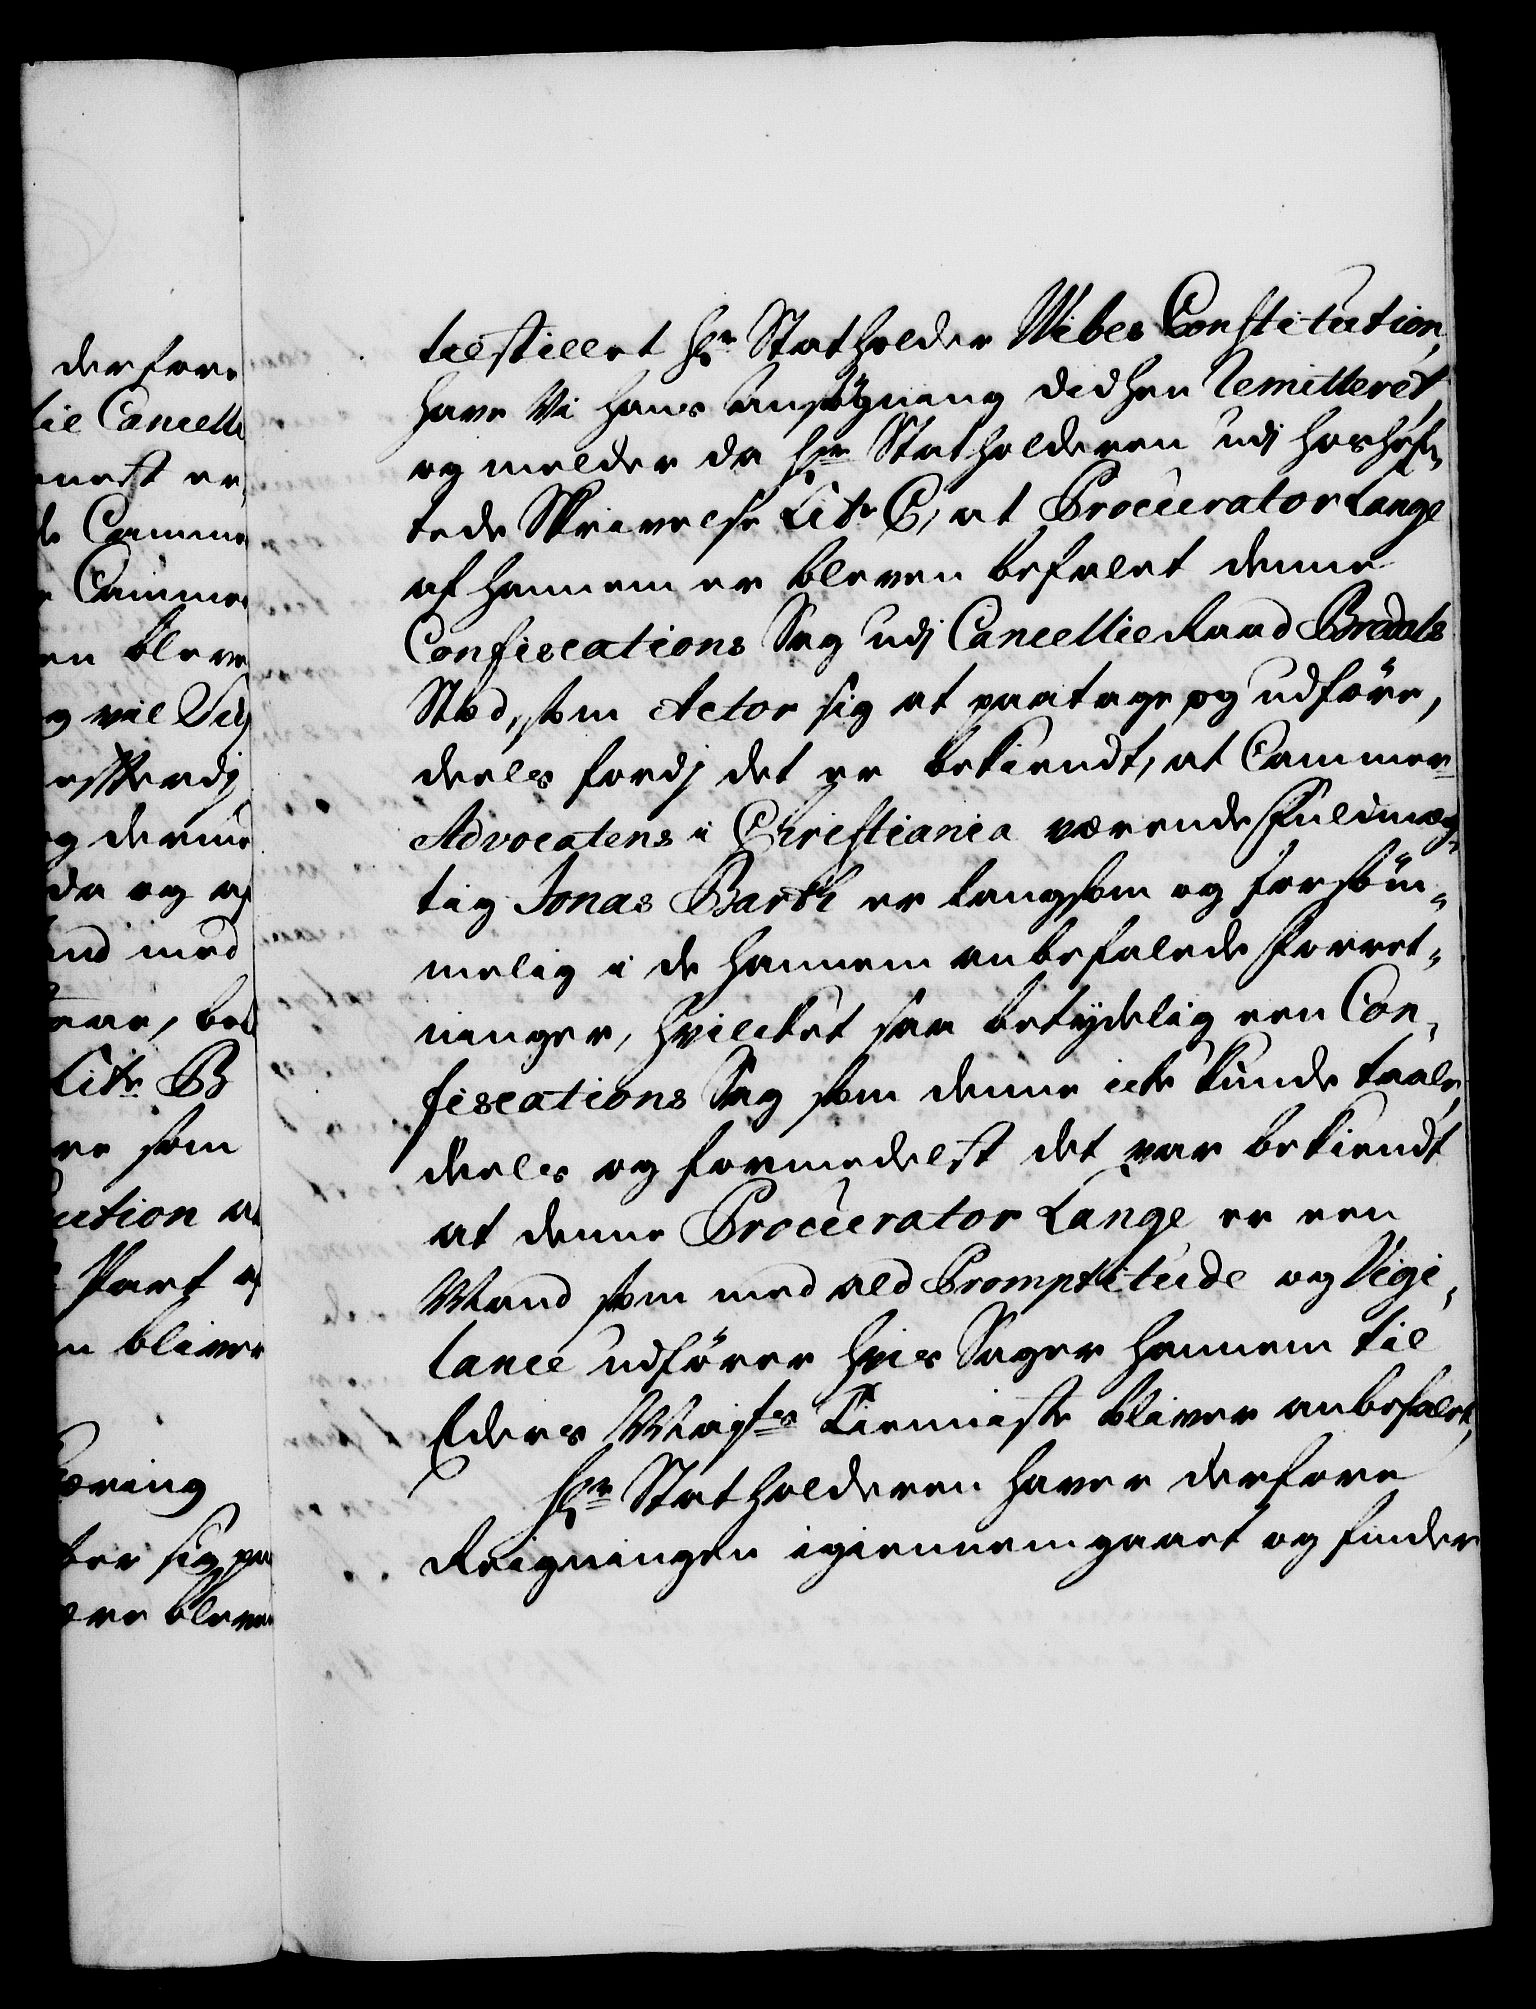 derfore
til Cancelli
enest er
de Camme
e Camme
en bleve
og vil Sig
da og af
and med
Litr B
re som
ution
Part
en bliver
æring
ter sig paa
ere bleven
tilstillet Hr Statholder Wibes Constitution,
have Vi hans Ansøgning didhen Remitteret,
og melder da Hr Statholderen udj hoshæf„
tede Skrivelse Litr C, at Procurator Lange
af hannem er bleven befalet denne
Confiscations Sag udj Cancellie Raad Bredals
Stæd, som Actor sig at paatage og udføre,
deels fordj det er bekiendt, at Cammer„
Advocatens i Christiania værende Fuldmæg„
tig Jonas Barth er langsom og forsøm„
melig i de hannem anbefalede Forret„
ninger, hvilcket saa betydelig een Con„
fiscations Sag som denne icke kunde taale,
deels og formedelst det var bekiendt
at denne Procurator Lange er een
Mand som med ald Promptitude og Vigi„
lance udfører hvis Sager hannem til
Eders Mayts Tienniste bliver anbefalet,
Hr Statholderen haver derfore
Reigningen igiennemgaaet og finder